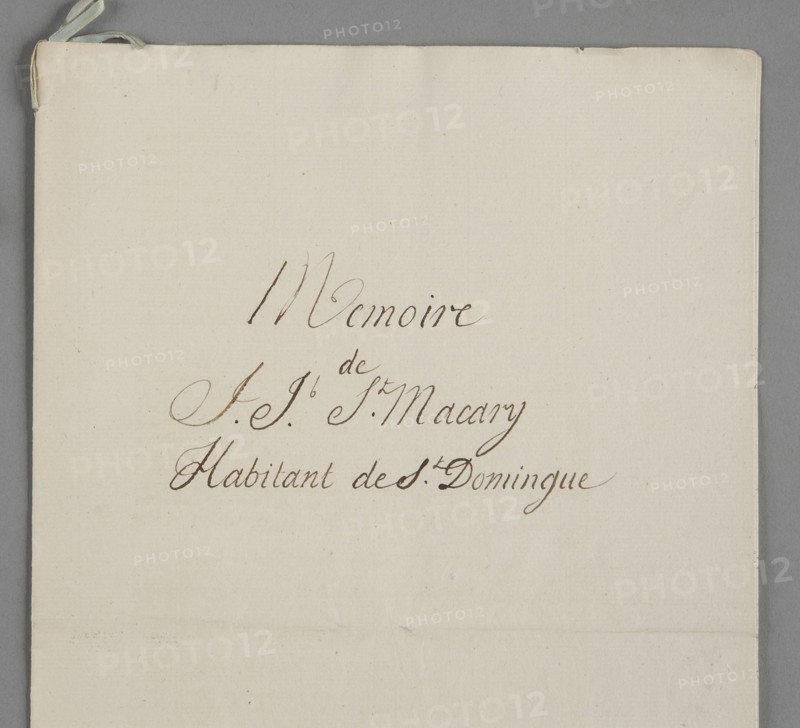 Memoire
de
J. J.b S.t Macary
Habitant de S.t Domingue
PHOTO12